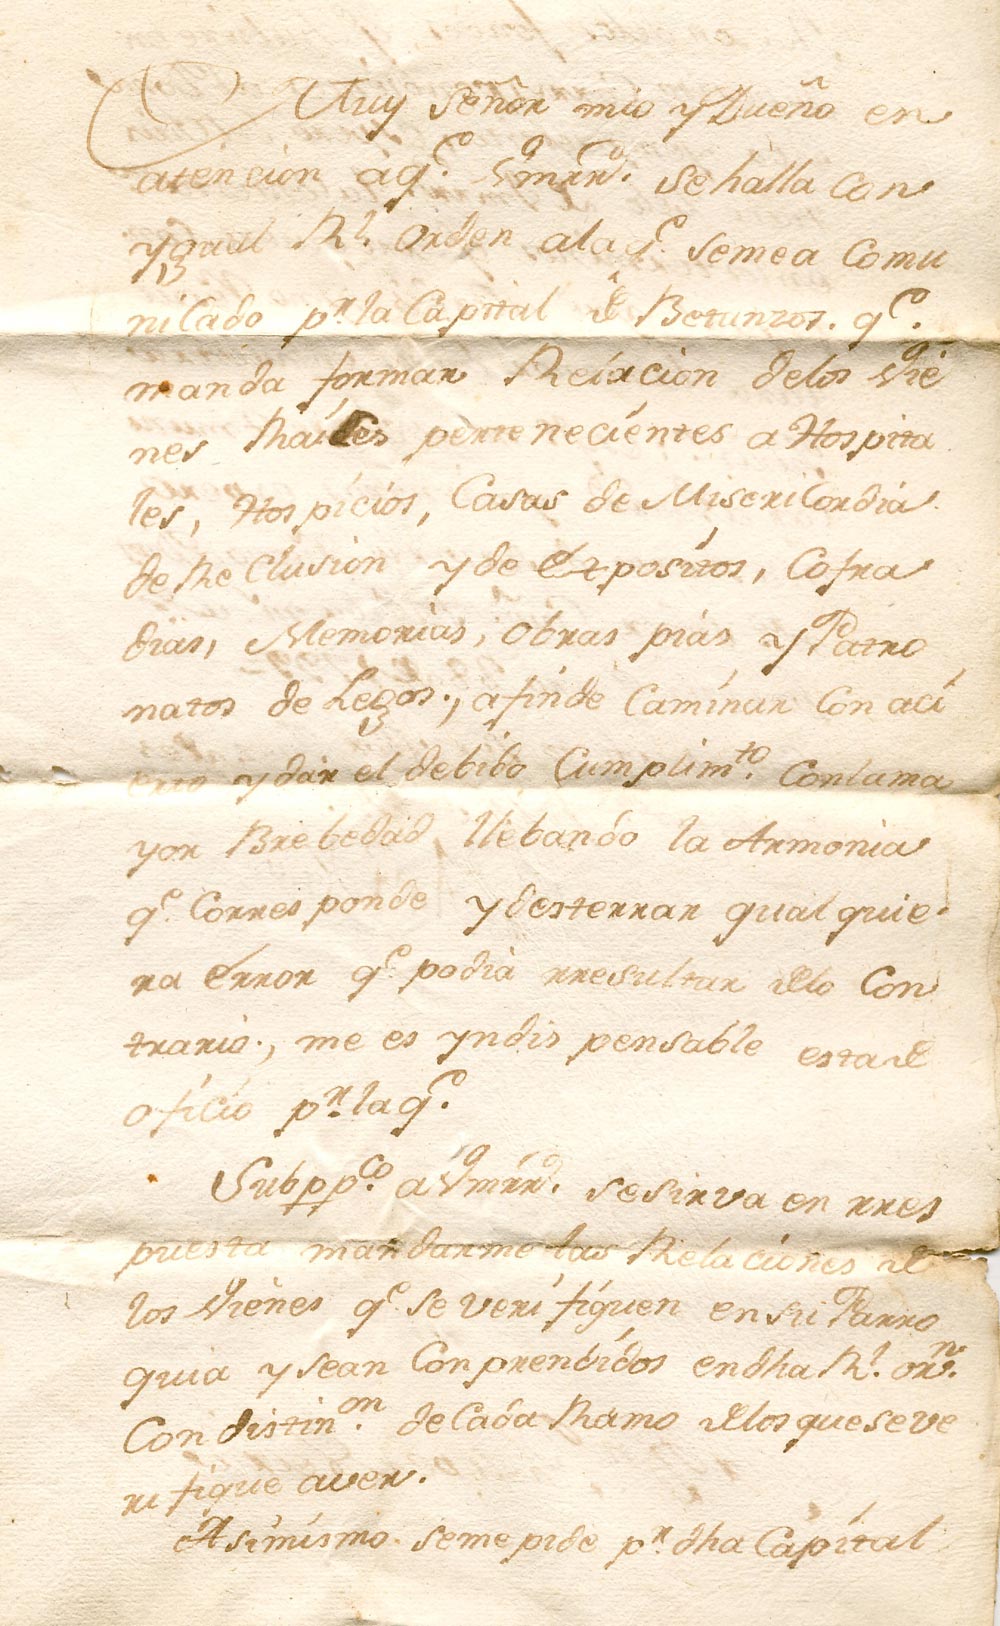 Muy señor mio y Dueño en
atencion áq.e Vmrd. se halla con
ygual Rl. orden ala q.e semea Comu
nicado pr. la Capital de Betanzos. q.e
manda formar Relacion delos vie
nes Raices pertenecientes a Hospita
les, Hospicios, Casas de Misericordia
de Reclusion y de Expositos, Cofra
dias, Memorias, obras pias y Patro
natos de Legos., afinde Caminar Con aci
erto y dar el debido Cumplim.to Conlama
yor Brebedad, llebando la Armonia
q.e Corresponde y desterrar qual quie
ra error q.e podia rresultar dello Con
trario., me es yndispensable esta de
oficio pr. laq.e
Subpp.co a Vmrd. sesirva en rres
puesta mandarme las Relaciones de
los vienes q.e se verifiquen en su Parro
quia y sean Conprendidos endha Rl. orn.
Con distin.on de Cada Ramo dellos que se ve
rifique aver.
Asimismo seme pide pr. dha Capital